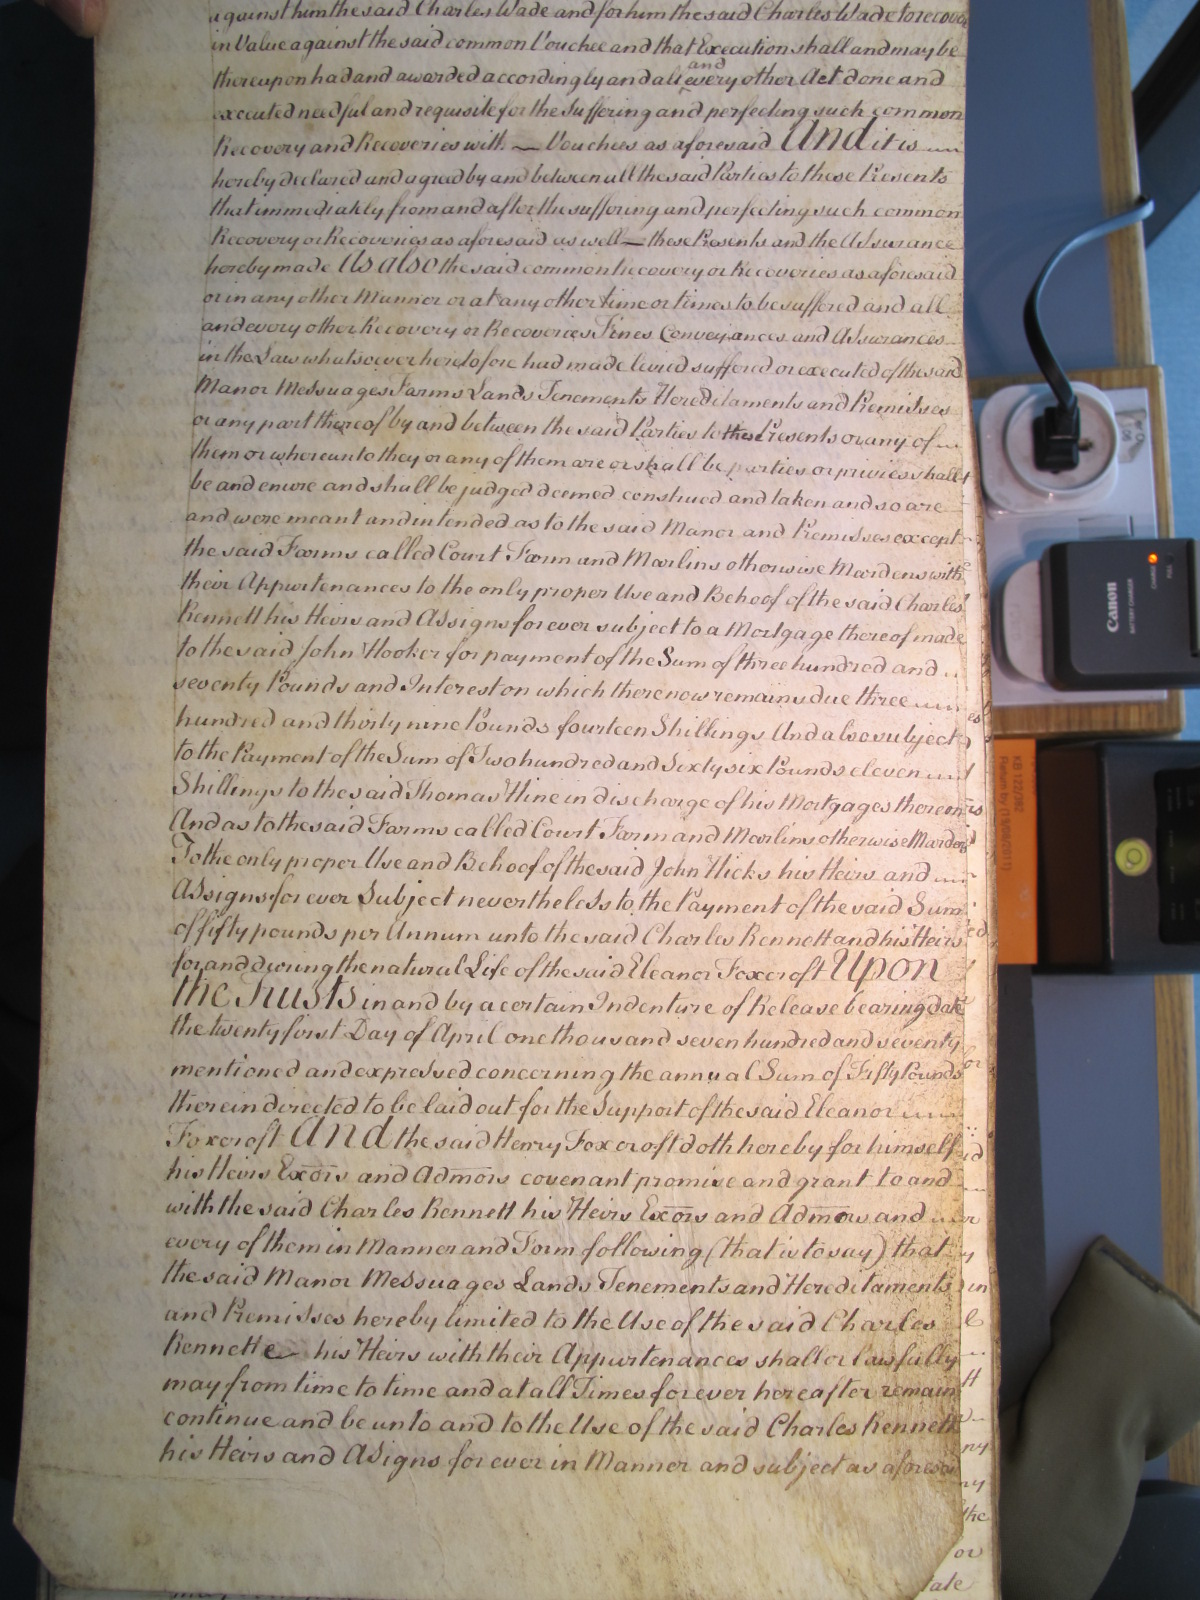 against him the said Charles Wade and for him the said Charles Wade to recover
in Value against the said common Vouchee and that Execution shall and may be
thereupon had and awarded accordingly and all and every other Act done and
executed needful and requisite for the Suffering and perfecting such common
Recovery and Recoveries with — Vouchees as aforesaid And it is
hereby declared and agreed by and between all the said Parties to these Presents
that immediately from and after the suffering and perfecting such common
Recovery or Recoverys as aforesaid as well — these Presents and the Assurance
hereby made As also the said common Recovery or Recoveries as aforesaid
or in any other Manner or at any other time or times to be suffered and all
and every other Recovery or Recoveries Fines Conveyances and Assurances
in the Law whatsoever heretofore had made levied suffered or executed of the said
Manor Messuages Farms Lands Tenements Hereditaments and Premisses
or any part thereof by and between the said Parties to these Presents or any of
them or whereunto they or any of them are or shall be parties or privies shall
be and enure and shall be judged deemed construed and taken and so are
and were meant and intended as to the said Manor and Premisses except
the said Farms called Court Farm and Marlins otherwise Mardens with
their Appurtenances to the only proper Use and Behoof of the said Charles
Kennett his Heirs and Assigns for ever subject to a Mortgage thereof made
to the said John Hooker for payment of the Sum of three hundred and
seventy Pounds and Interest on which there now remains due three
hundred and thirty nine Pounds fourteen Shillings And also subject
to the Payment of the Sum of Two hundred and Sixty six Pounds eleven
Shillings to the said Thomas Hine in discharge of his Mortgages thereon
And as to the said Farms called Court Farm and Marlins otherwise Mardens
To the only proper Use and Behoof of the said John Hicks his Heirs and
Assigns for ever Subject nevertheless to the Payment of the said Sum
of fifty pounds per Annum unto the said Charles Kennett and his Heirs
for and during the natural Life of the said Eleanor Foxcroft Upon
the Trusts in and by a certain Indenture of Release bearing date
the twenty first Day of April one thousand seven hundred and seventy
mentioned and expressed concerning the annual Sum of Fifty Pounds
therein directed to be laid out for the Support of the said Eleanor
Foxcroft And the said Henry Foxcroft doth hereby for himself
his Heirs Exors and Admors covenant promise and grant to and
with the said Charles Kennett his Heirs Exors and Admors and
every of them in Manner and Form following (that is to say) that
the said Manor Messuages Lands Tenements and Hereditaments
and Premisses hereby limited to the Use of the said Charles
Kennett his Heirs with their Appurtenances shall or lawfully
may from time to time and at all Times for ever hereafter remain
continue and be unto and to the Use of the said Charles Kennett
his Heirs and Assigns for ever in Manner and subject as aforesaid
the
or
Canon
BATTERY CHARGER
CHARGE
FULL
KB 122/362